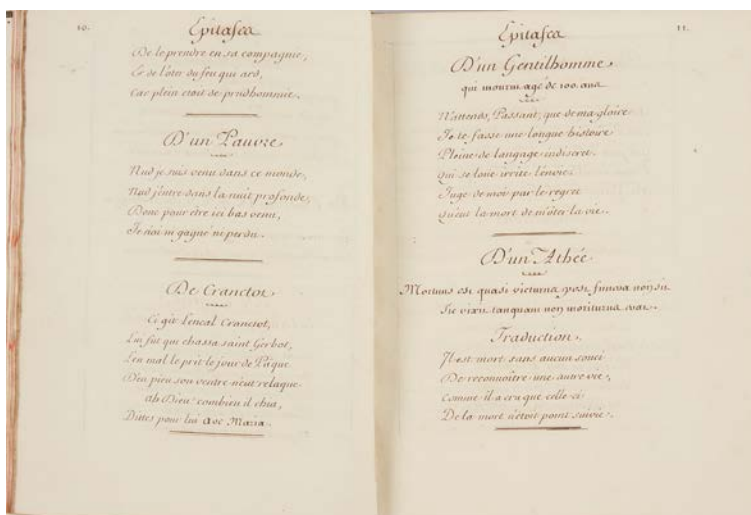 10.
Epitafea
De le prendre en sa compagnie,
Et de l'oter du feu qui ard,
Car plein etoit de prudhommie.
D'un Pauvre
Nud je suis venu dans ce monde,
Nud j'entre dans la nuit profonde,
Donc pour être ici bas venu,
Je n'ai ni gagné ne perdu.
De Cranctot
Ci git Pencal Cranctot,
Lui fut qui chassa saint Gerbot,
L'en mal le prit le jour de Pâque
D'en pieu son ventre n'eut relaque
Ah Dieu ! combien il chia,
Dittes pour lui Ave Maria.
11.
Epitafea
D'un Gentilhomme
qui mourut agé de 100. ans
N'attends, Passant, que de ma gloire
Je te fasse une longue histoire
Pleine de langage indiscret.
Qui se loue irrite l'envie.
Juge de moi par le regret
Qu'eut la mort de m'ôter la vie.
D'un Athée
Mortuus est quasi victurus post funera non sit
Sic vixit tanquam non moriturus erat.
Traduction.
Il est mort sans aucun souci
De reconnoître une autre vie,
Comme il a cru que celle ci
De la mort n'étoit point suivie.